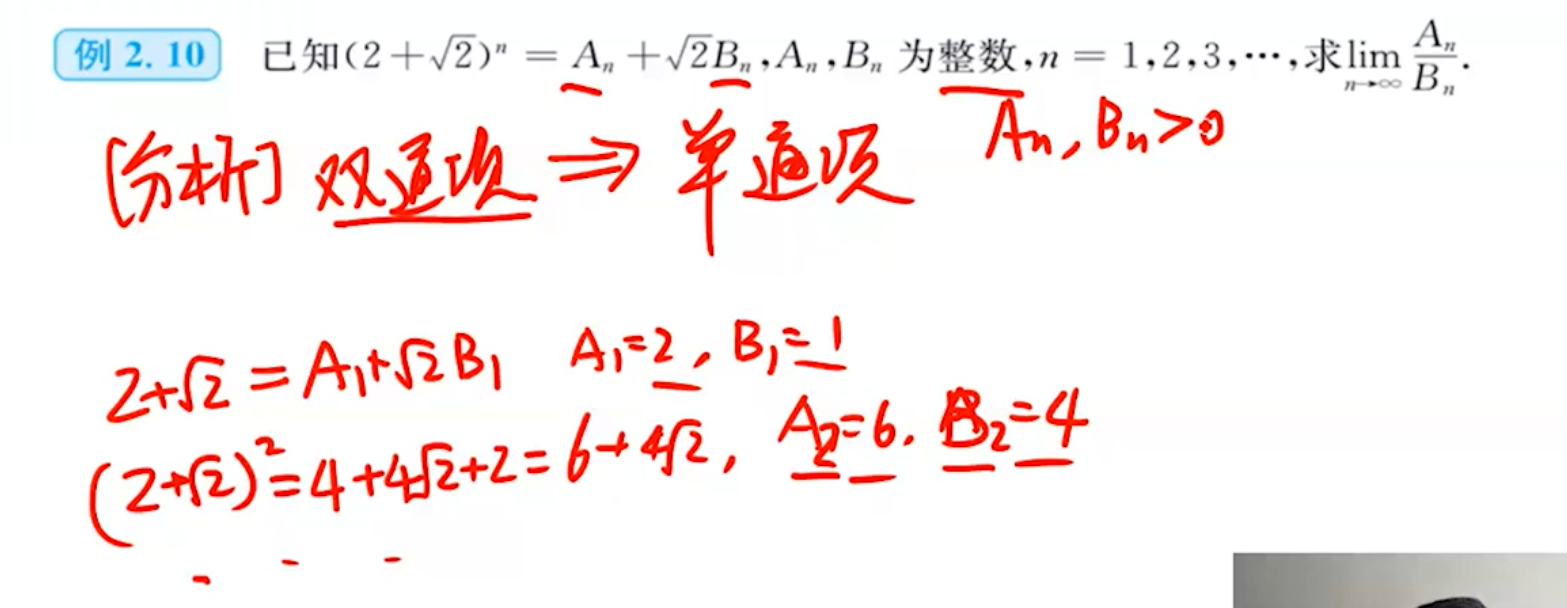 例 2.10 已知(2+√2)ⁿ = Aₙ+√2Bₙ,Aₙ,Bₙ 为整数,n = 1,2,3,⋯,求lim n→∞ Aₙ/Bₙ.
Aₙ, Bₙ>0
[分析] 双通项 ⇒ 单通项
2+√2 = A₁+√2B₁ A₁=2, B₁=1
(2+√2)²=4+4√2+2=6+4√2, A₂=6. B₂=4